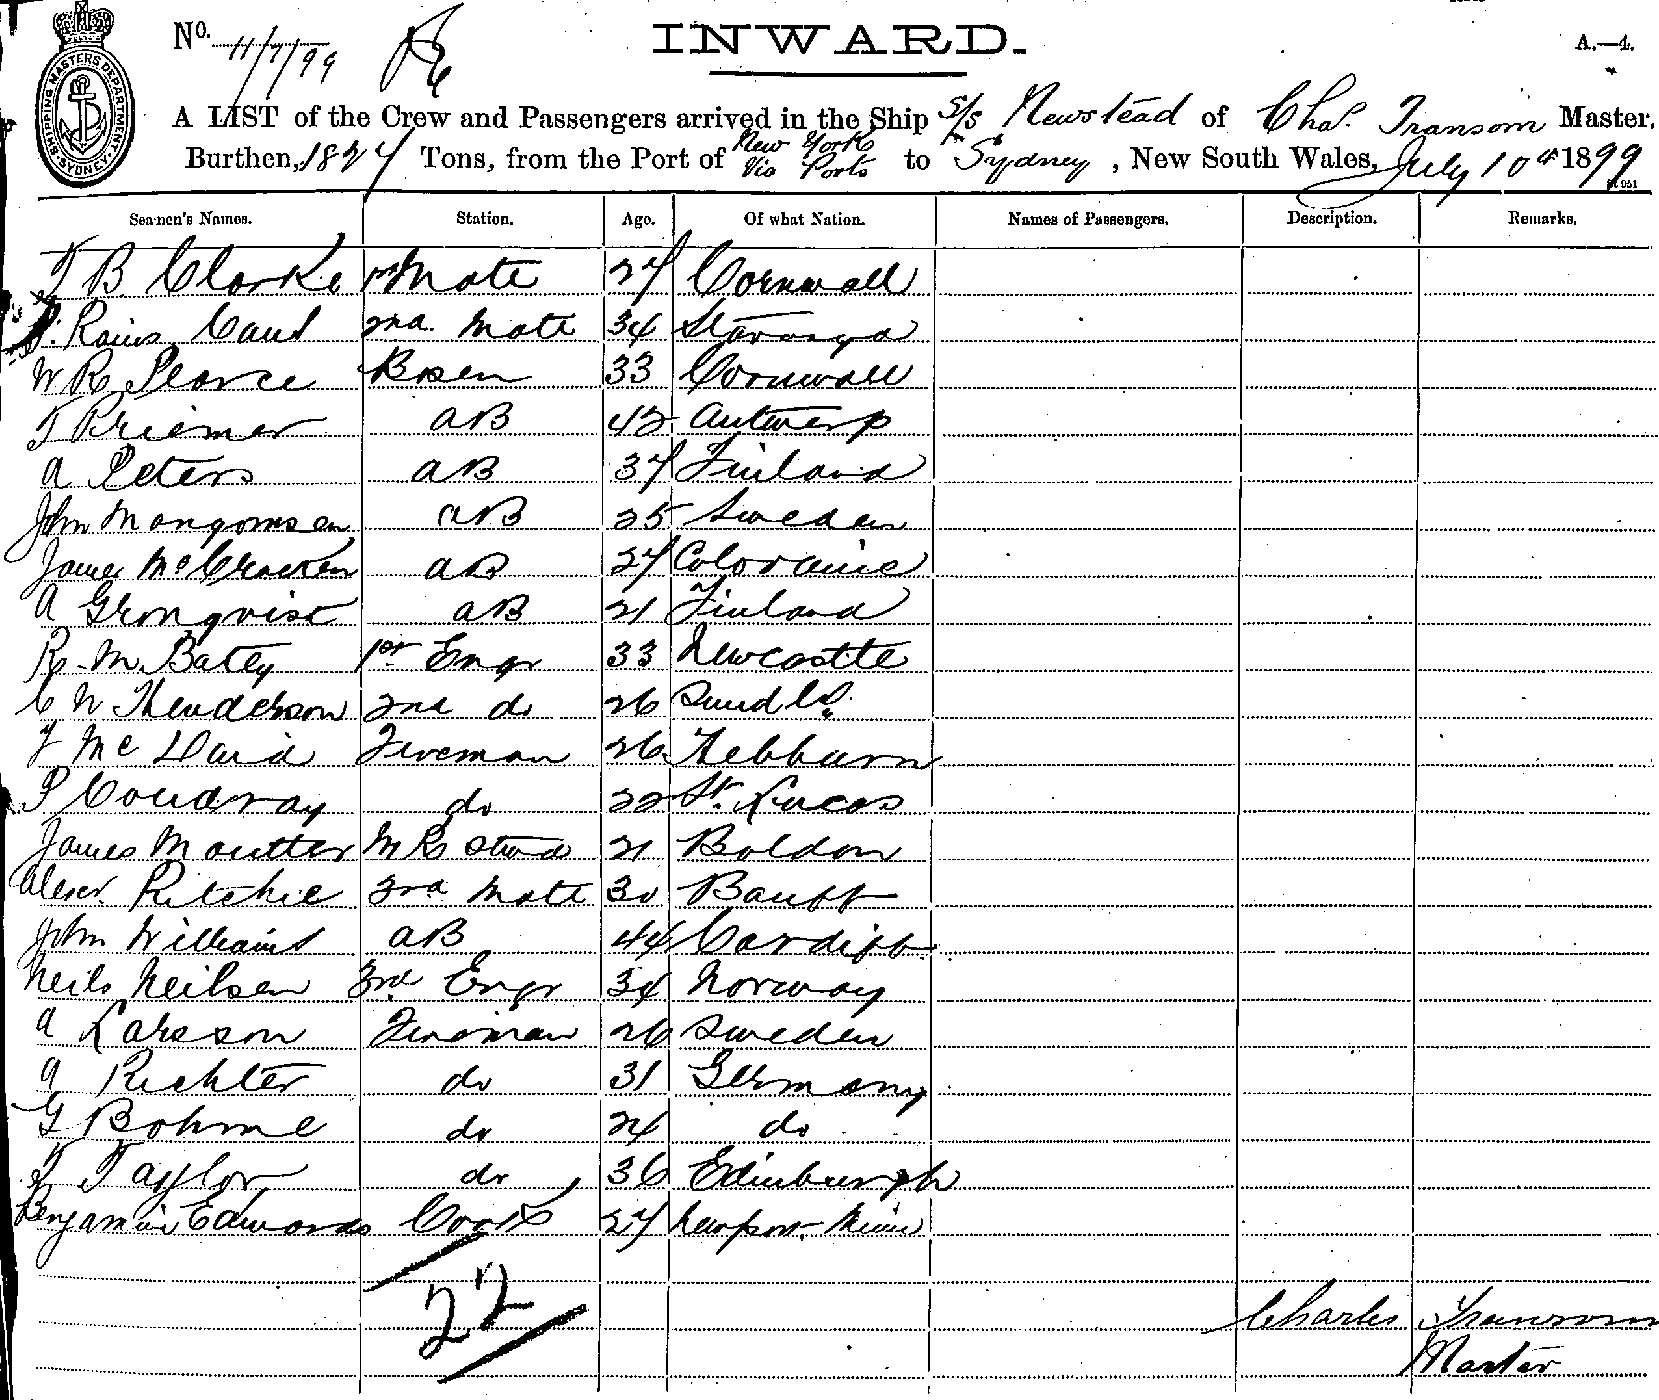 No. 11/7/99
INWARD.
A.—4.
SHIPPING MASTERS DEPARTMENT
A LIST of the Crew and Passengers arrived in the Ship S/S Newstead of Chas. Transom Master,
Burthen, 1827 Tons, from the Port of New York Via Ports to Sydney, New South Wales, July 10th 1899
Seamen's Names. Station. Age. Of what Nation. Names of Passengers. Description. Remarks.
T B Clarke 1st Mate 27 Cornwall
Rains 2nd. Mate 34
W R Pearce Bosen 33 Cornwall
T Priemer AB 42 Antwerp
A Peters AB 37 Finland
John Mongomsen AB 25 Sweden
James McCracken AB 27 Coloraine
A Gronqvist AB 21 Finland
R. M. Batey 1st Engr 33 Newcastle
C N Henderson 2nd do 26 Sundld.
McDaid Fireman 26 Hebburn
P Coudray do 22 St. Lucas
James Moutter M R Stwd 21 Boldon
Alexr. Ritchie 3rd Mate 30 Banff
John Williams AB 44 Cardiff
Neils Neilsen 3rd Engr 34 Norway
A Larsson Fireman 26 Sweden
A Richter do 31 Germany
G Bohme do 24 do
T Taylor do 36 Edinburgh
Benjamin Edwards Cook 27 Newport. Mon
22
Charles Transom
Master